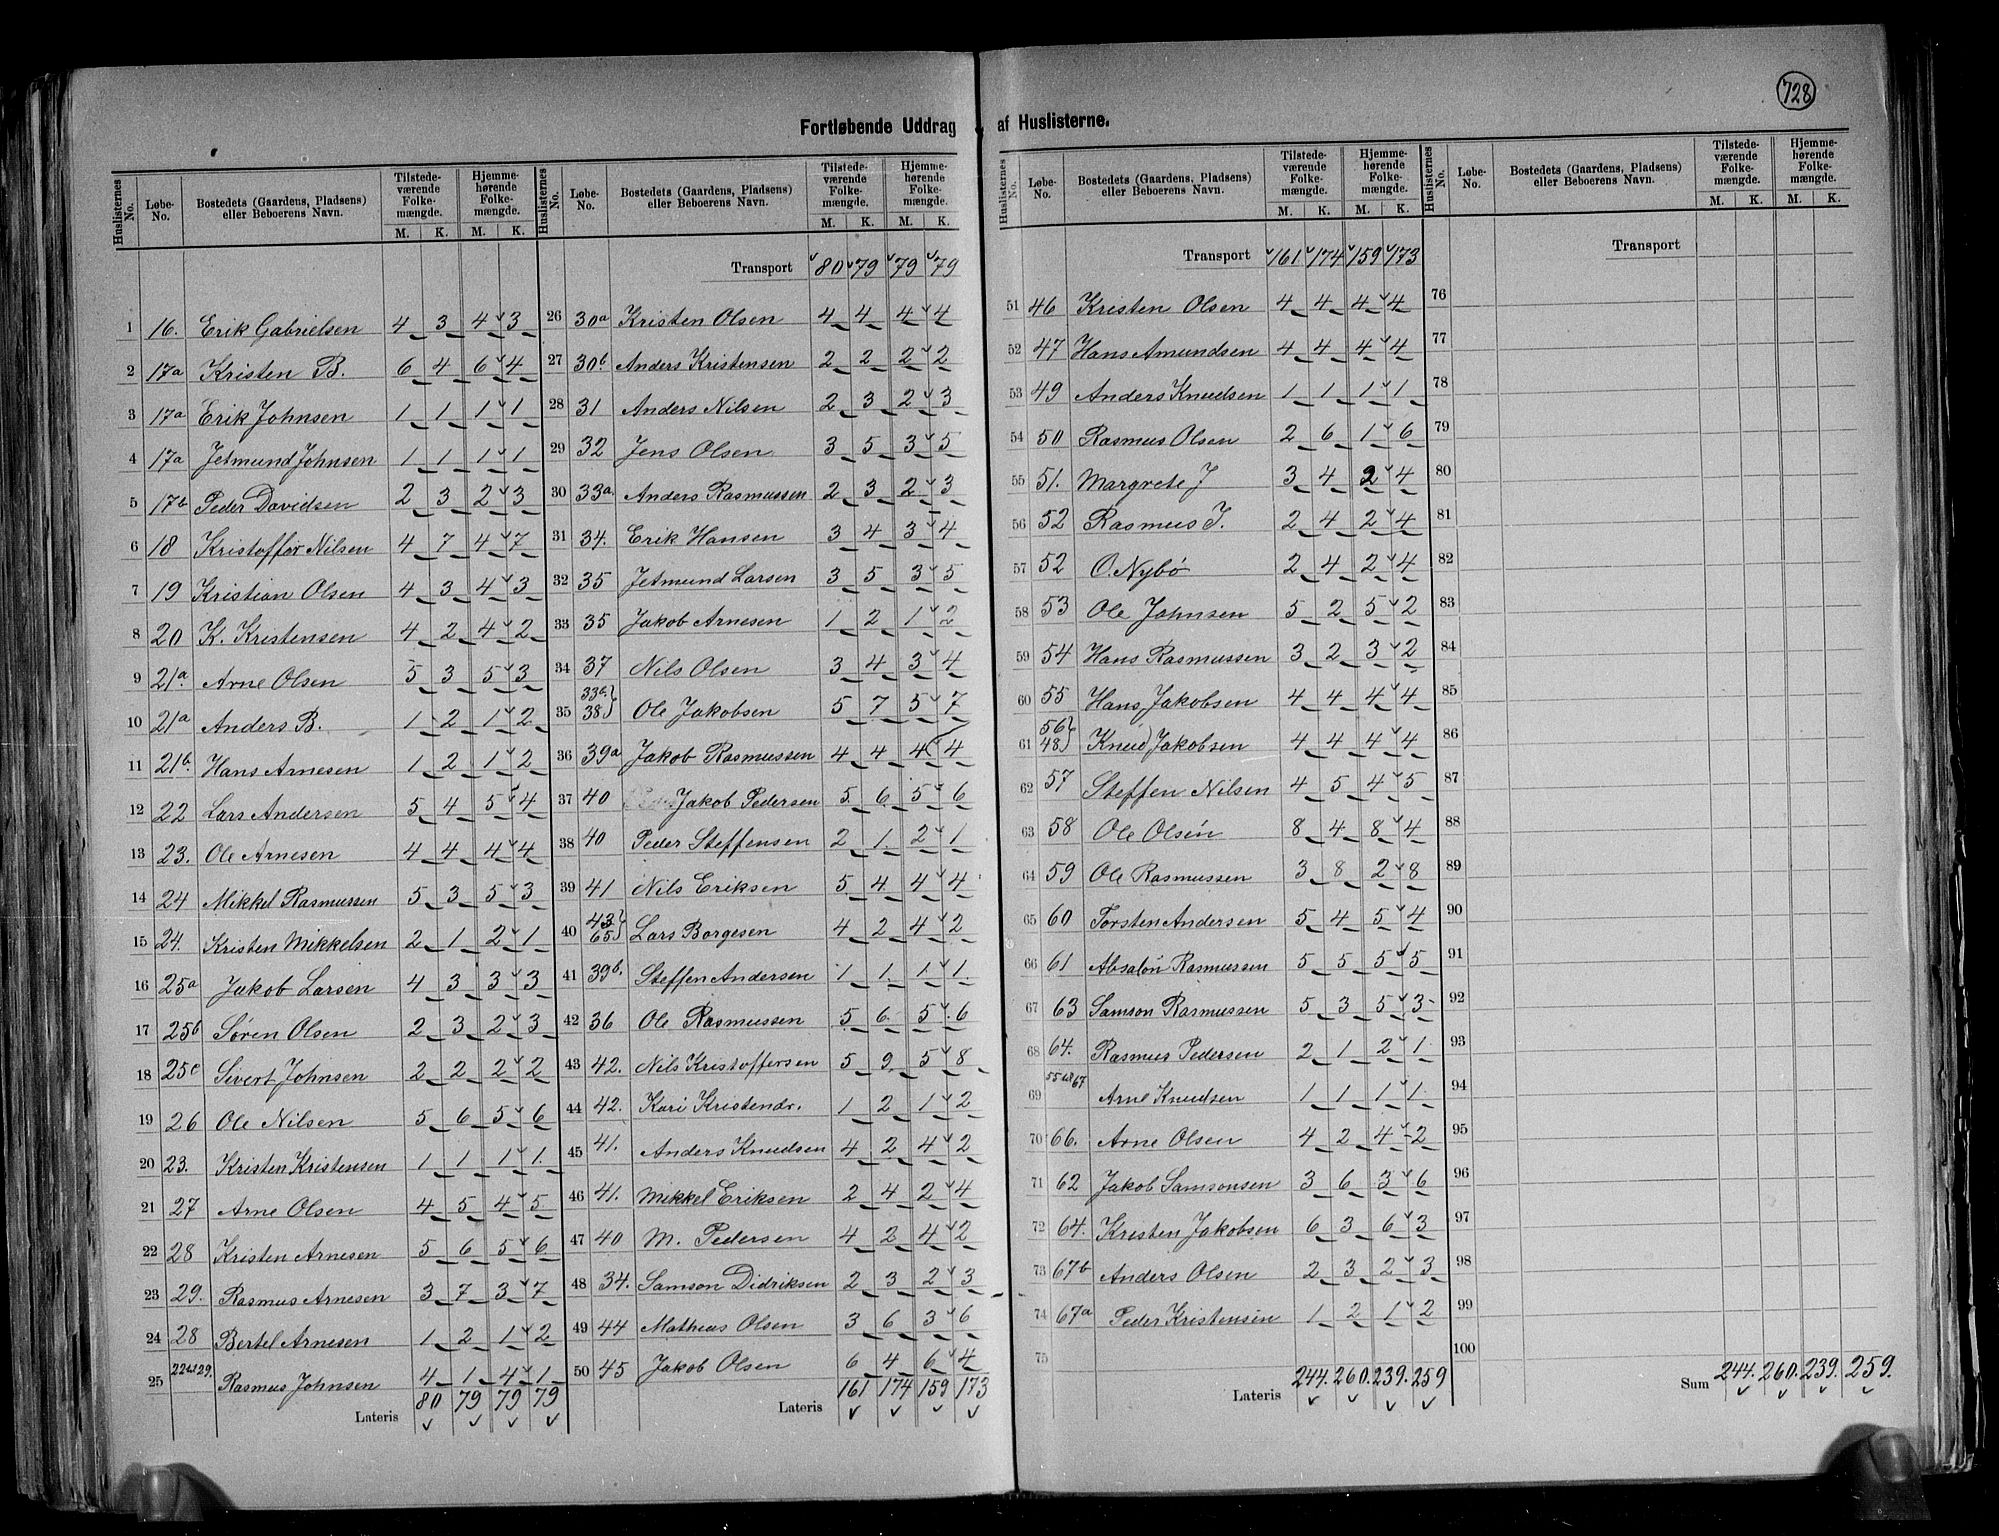 728
Fortløbende Uddrag af Huslisterne.
Huslisternes No. Løbe-No. Bostedets (Gaardens, Pladsens) eller Beboerens Navn. Tilstedeværende Folkemængde. M. K. Hjemmehørende Folkemængde. M. K.
1 16. Erik Gabrielsen 4 3 4 3
2 17a Kristen B. 6 4 6 4
3 17a Erik Johnsen 1 1 1 1
4 17a Jetmund Johnsen 1 1 1 1
5 17b Peder Davidsen 2 3 2 3
6 18 Kristoffor Nilsen 4 7 4 7
7 19 Kristian Olsen 4 3 4 3
8 20 K. Kristensen 4 2 4 2
9 21a Arne Olsen 5 3 5 3
10 21a Anders B. 1 2 1 2
11 21b. Hans Arnesen 1 2 1 2
12 22 Lars Andersen 5 4 5 4
13 23. Ole Arnesen 4 4 4 4
14 24 Mikkel Rasmussen 5 3 5 3
15 24. Kristen Mikkelsen 2 1 2 1
16 25a Jakob Larsen 4 3 3 3
17 25b Søren Olsen 2 3 2 3
18 25c Sivert Johnsen 2 2 2 2
19 26 Ole Nilsen 5 6 5 6
20 23. Kristen Kristensen 1 1 1 1.
21 27 Arne Olsen 4 5 4 5
22 28 Kristen Arnesen 5 6 5 6
23 29. Rasmus Arnesen 3 7 3 7
24 28 Bertel Arnesen 1 2 1 2
25 22 29. Rasmus Johnsen 4 1 4 1
Lateris 80 79 79 79
Huslisternes No. Løbe-No. Bostedets (Gaardens, Pladsens) eller Beboerens Navn. Tilstedeværende Folkemængde. M. K. Hjemmehørende Folkemængde. M. K.
Transport 80 79 79 79
26 30a Kristen Olsen 4 4 4 4
27 30b. Anders Kristensen 2 2 2 2
28 31 Anders Nilsen 2 3 2 3
29 32 Jens Olsen 3 5 3 5
30 33a. Anders Rasmussen 2 3 2 3
31 34. Erik Hansen 3 4 3 4
32 35 Jetmund Larsen 3 5 3 5
33 35 Jakob Arnesen 1 2 1 2
34 37 Nils Olsen 3 4 3 4
35 38 Ole Jakobsen 5 7 5 7
36 39a Jakob Rasmussen 4 4 4 4
37 40 Jakob Pedersen 5 6 5 6
38 40 Peder Steffensen 2 1 2 1
39 41 Nils Eriksen 5 4 4 4
40 43 65 Lars Borgesen 4 2 4 2
41 39b. Steffen Andersen 1 1 1 1
42 36 Ole Rasmussen 5 6 5 6
43 42. Nils Kristoffersen 5 9 5 8
44 42. Kari Kristendr. 1 2 1 2
45 41. Anders Knudsen 4 2 4 2
46 41. Mikkel Eriksen 2 4 2 4
47 40 M. Pedersen 4 2 4 2
48 34. Samson Didriksen 2 3 2 3
49 44 Matheus Olsen 3 6 3 6
50 45 Jakob Olsen 6 4 6 4
Lateris 161 174 159 173
Huslisternes No. Løbe-No. Bostedets (Gaardens, Pladsens) eller Beboerens Navn. Tilstedeværende Folkemængde. M. K. Hjemmehørende Folkemængde. M. K.
Transport 161 174 159 173
51 46 Kristen Olsen 4 4 4 4
52 47 Hans Amundsen 4 4 4 4
53 49 Anders Knudsen 1 1 1 1
54 50 Rasmus Olsen 2 6 1 6
55 51. Margrete J 3 4 2 4
56 52 Rasmus J. 2 4 2 4
57 52 O. Nybø 2 4 2 4
58 53 Ole Johnsen 5 2 5 2
59 54 Hans Rasmussen 3 2 3 2
60 55 Hans Jakobsen 4 4 4 4
61 56 48 Knud Jakobsen 4 4 4 4
62 57 Steffen Nilsen 4 5 4 5
63 58 Ole Olsen 8 4 8 4
64 59 Ole Rasmussen 3 8 2 8
65 60 Torsten Andersen 5 4 5 4
66 61 Absalon Rasmussen 5 5 5 5
67 63 Samson Rasmussen 5 3 5 3
68 64. Rasmus Pedersen 2 1 2 1
69 55 67 Arne Knudsen 1 1 1 1.
70 66. Arne Olsen 4 2 4 2
71 62 Jakob Samsonsen 3 6 3 6
72 64. Kristen Jakobsen 6 3 6 3
73 67b Anders Olsen 2 3 2 3
74 67a Peder Kristensen 1 2 1 2
75
Lateris 244. 260. 239. 259
Huslisternes No. Løbe-No. Bostedets (Gaardens, Pladsens) eller Beboerens Navn. Tilstedeværende Folkemængde. M. K. Hjemmehørende Folkemængde. M. K.
Transport
76
77
78
79
80
81
82
83
84
85
86
87
88
89
90
91
92
93
94
95
96
97
98
99
100
Sum 244. 260. 239. 259.